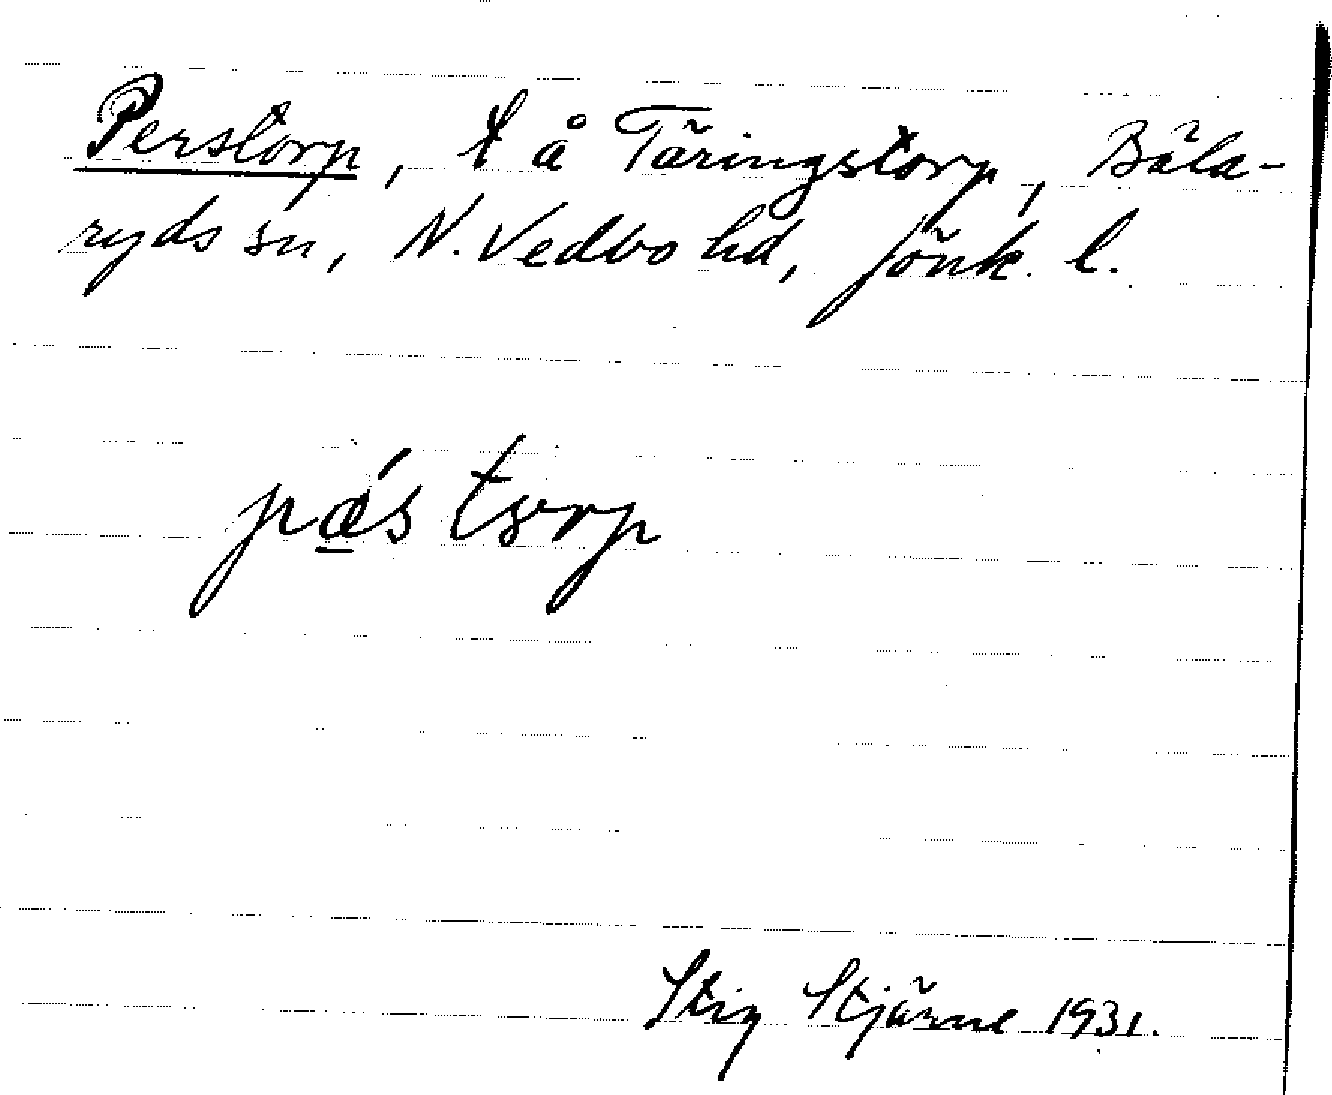 Perstorp, t å Täringstorp, Bäla-
ryds sn, N. Vedbo hd, Jönk. l.
Stig Stjärne 1931.